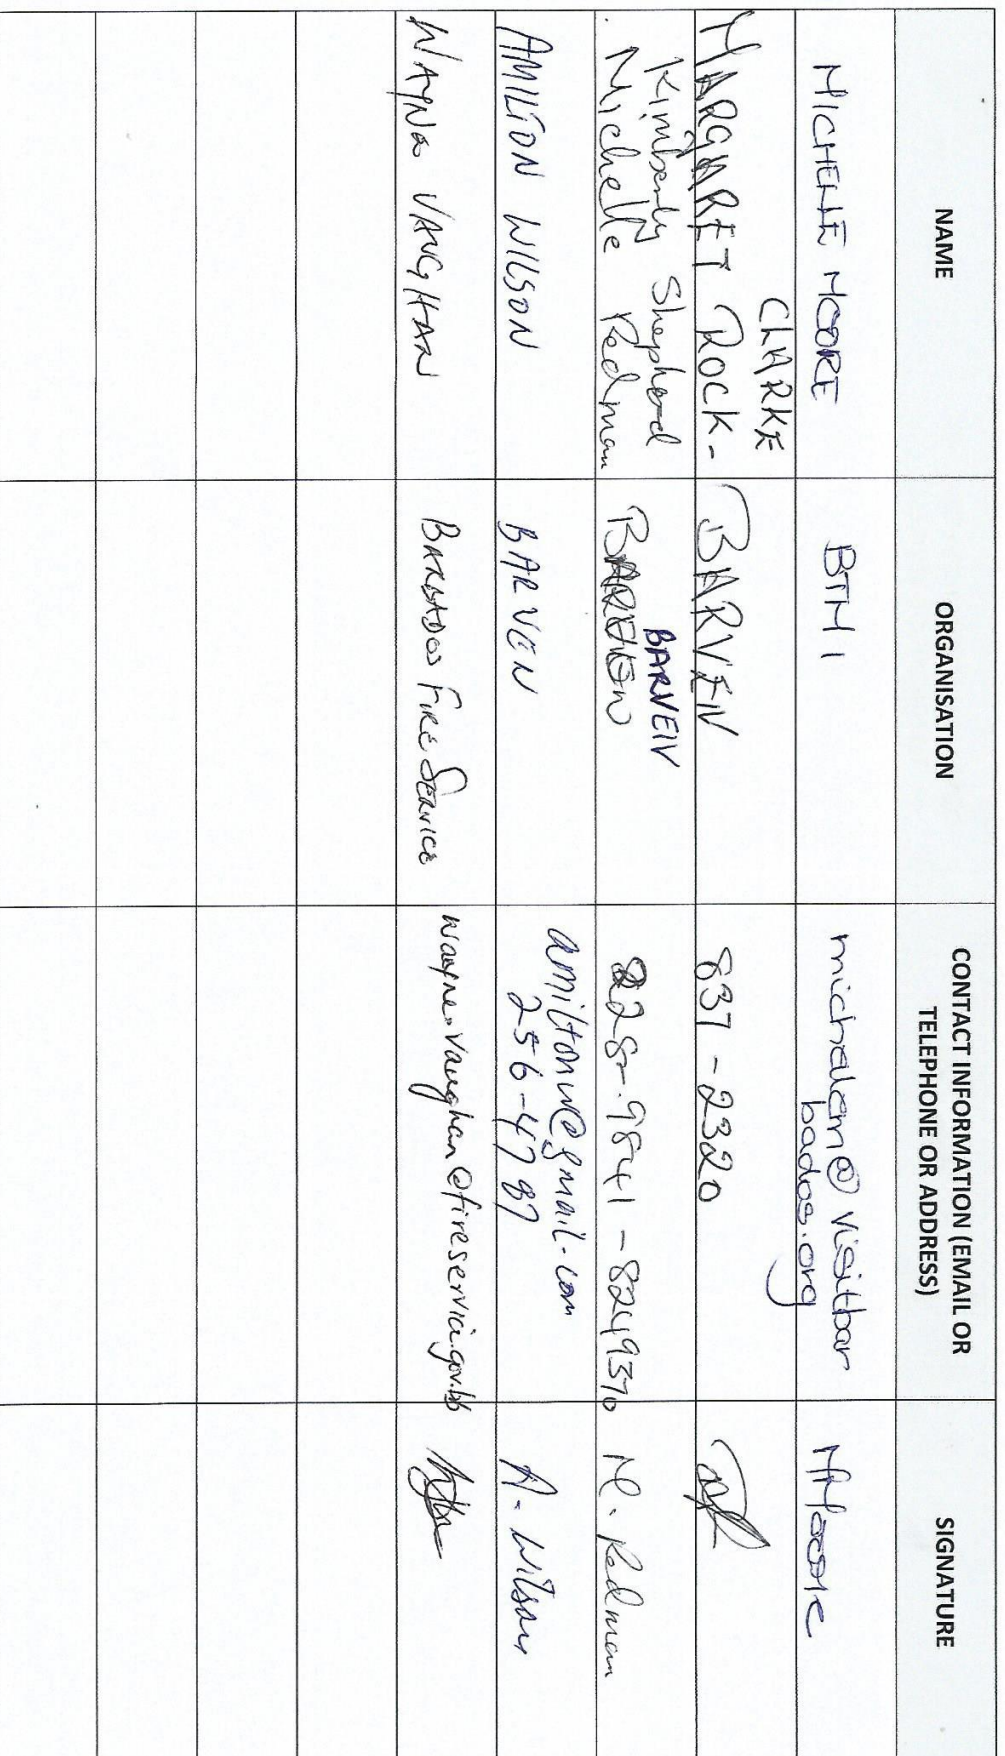 NAME
ORGANISATION
CONTACT INFORMATION (EMAIL OR
TELEPHONE OR ADDRESS)
SIGNATURE
MICHELLE MOORE
BTMI
michelem@visitbar
bados.org
MMoore
CLARKE
MARGARET ROCK-
BARVEN
837-2320
Kimberly Shepherd
Michelle Redman
BARVEIV
228-9841 - 8249370
M. Redman
AMILTON WILSON
BARVEN
amiltonw@gmail.com
256-4787
A. Wilson
WAYNE VAUGHAN
BARBADOS FIRE SERVICE
wayne.vaughan@fireservice.gov.bb